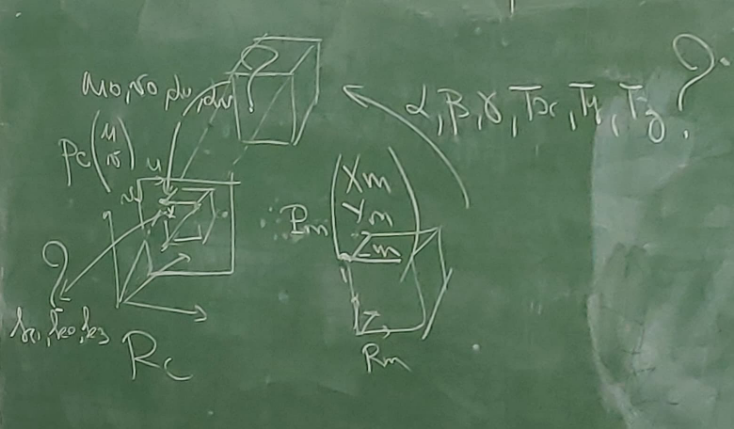 ?
u0, v0, du, dv
α, β, γ, Tx, Ty, Tz ?
Pc (u
v)
u
v
Pm (Xm
Ym
Zm)
?
k1, k2, k3
Rc
Rm